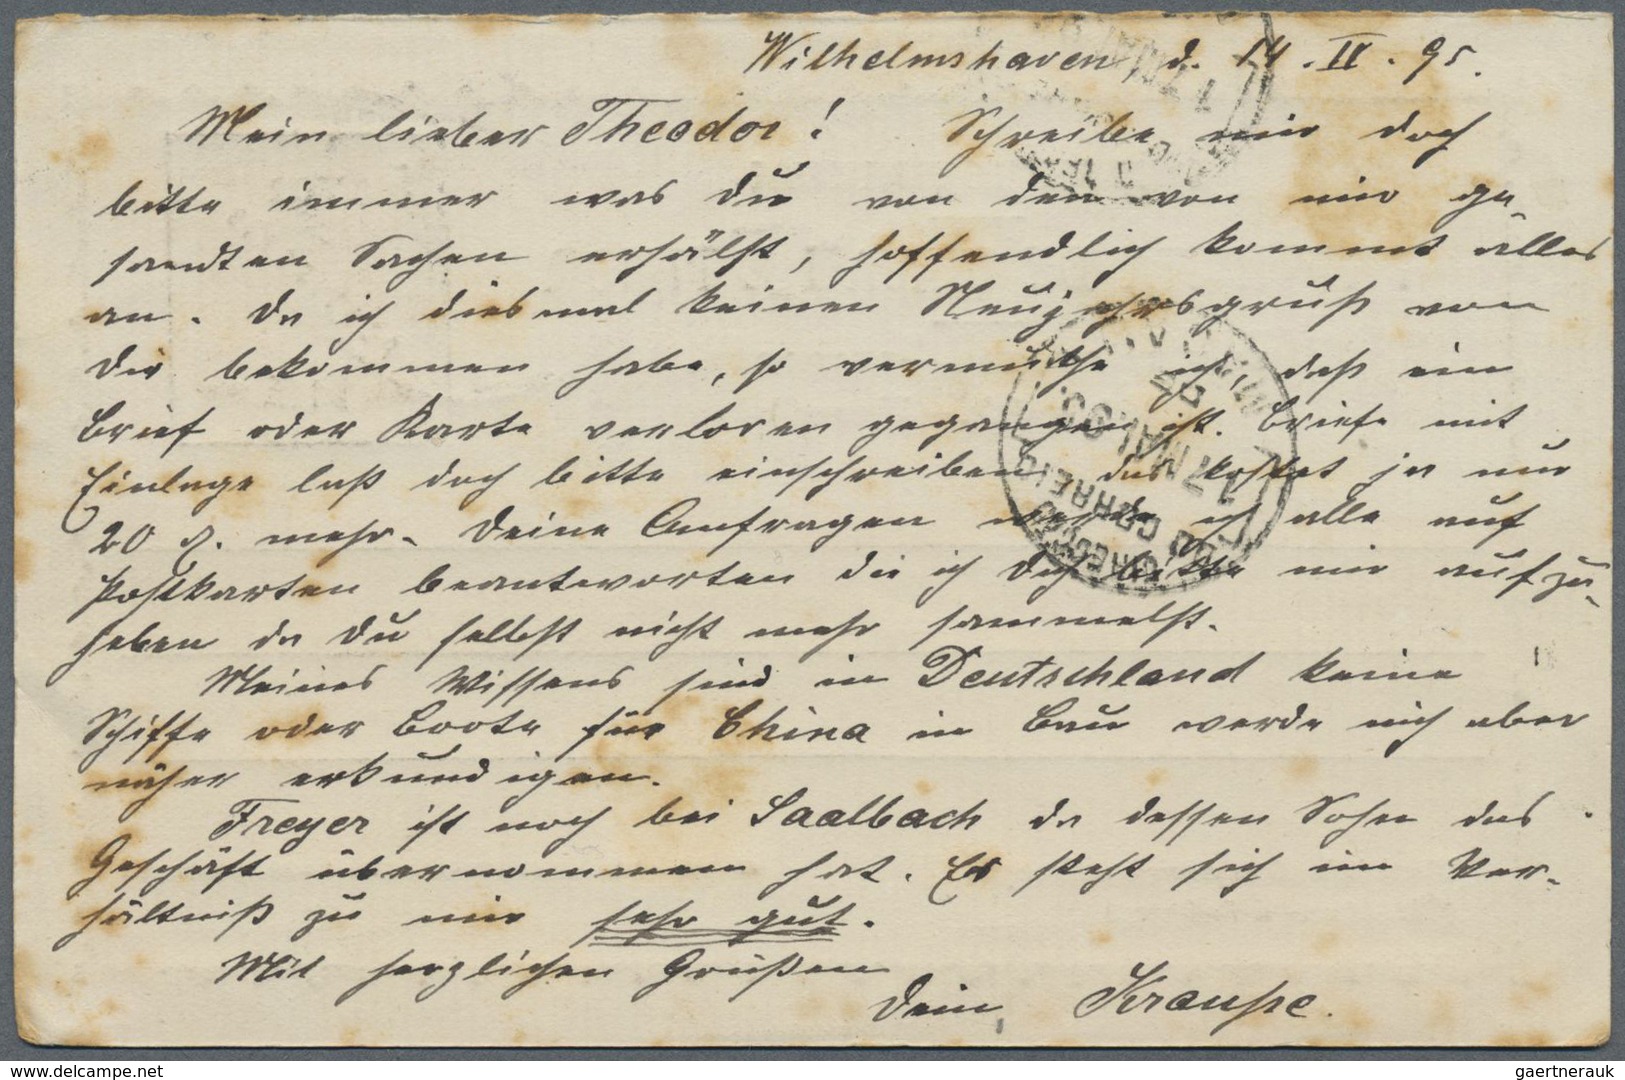 Wilhelmshaven, d. 14. II. 95.
Mein lieber Theodor! Schreibe mir doch
bitte immer was Du von den von mir ge-
sandten Sachen erhälst, hoffendlich kommt alles
an. Da ich diesmal keinen Neujahrsgruß von
Dir bekommen habe, so vermuthe ich, daß ein
Brief oder Karte verloren gegangen ist. Briefe mit
Einlage laß doch bitte einschreiben, das kostet ja nur
20 ₰. mehr. Deine Anfragen werde ich alle auf
Postkarten beantworten die ich Dich bitte mir aufzu-
heben da Du selbst nicht mehr sammelst.
Meines Wissens sind in Deutschland keine
Schiffe oder Boote für China in Bau werde mich aber
näher erkundigen.
Freyer ist noch bei Saalbach da dessen Sohn das
Geschäft übernommen hat. Er steht sich im Ver-
hältniß zu mir sehr gut.
Mit herzlichen Grüßen
Dein Krauße.
delcampe.net
gaertnerauk